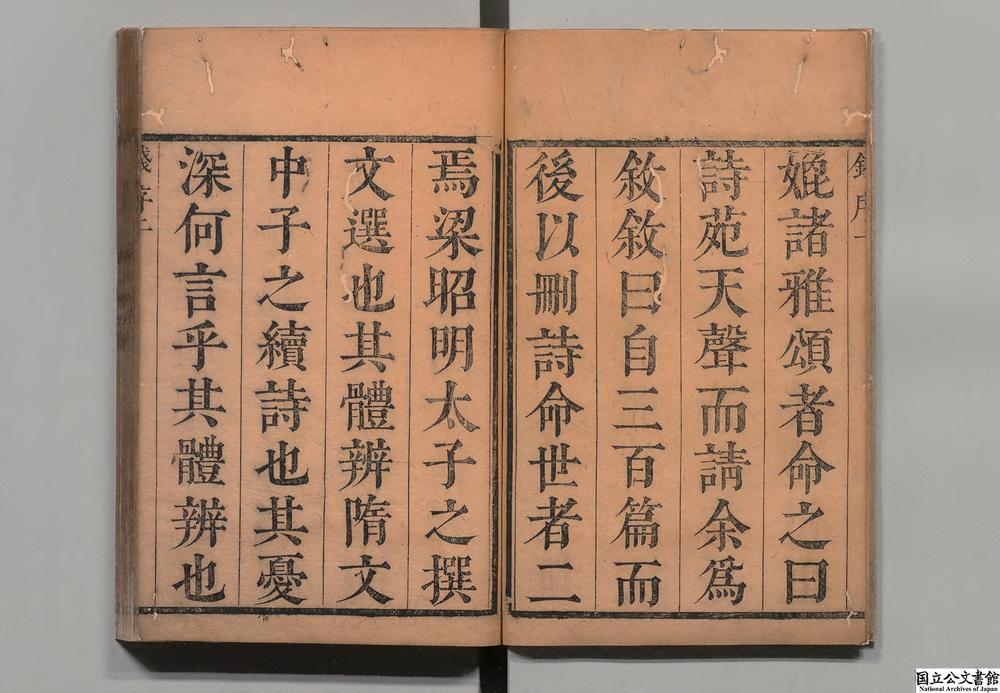 媲諸雅頌者命之曰
詩苑天聲而請余爲
敘敘曰自三百篇而
後以刪詩命世者二
焉梁昭明太子之撰
文選也其體辨隋文
中子之續詩也其憂
深何言乎其體辨也
国立公文書館
National Archives of Japan